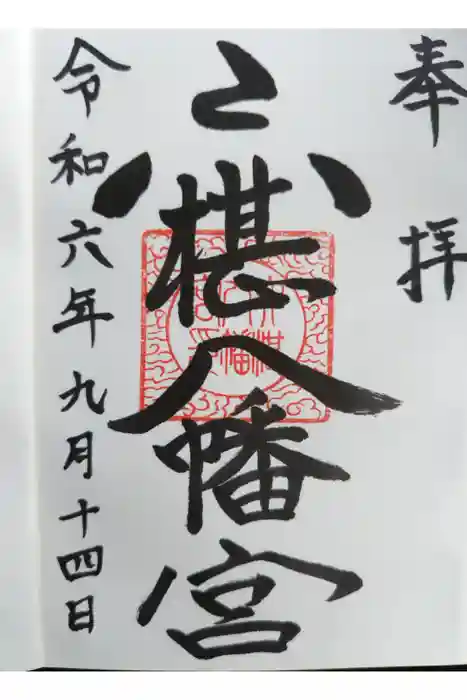 奉拝
六椹八幡宮
令和六年九月十四日